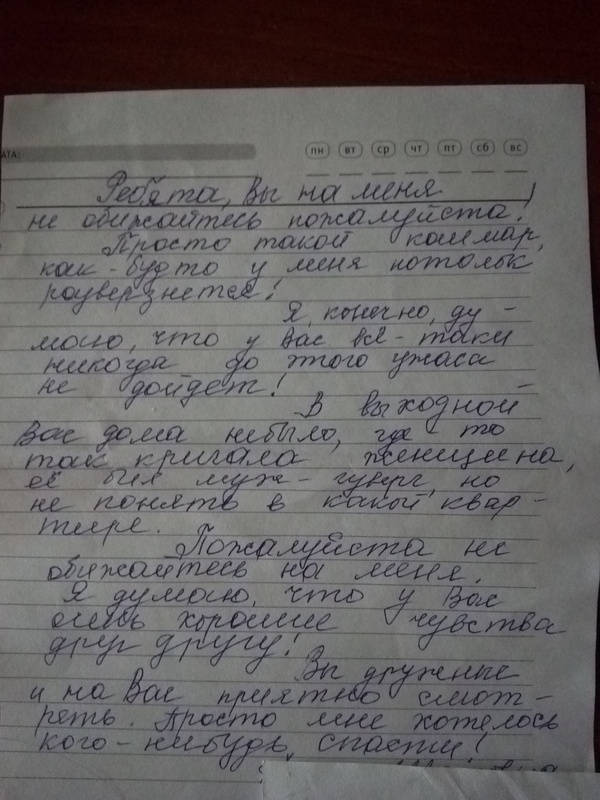 АТА:
пн вт ср чт пт сб вс
Ребята, Вы на меня
не обижайтесь пожалуйста!
Просто такой кашмар,
как-будто у меня потолок
разверзнется!
Я, конечно, ду-
маю, что у Вас всё-таки
никогда до этого ужаса
не дойдет!
В выходной
Вас дома небыло, где-то
так кричала женщина,
её бил муж-, но
не понять в какой квар-
тире.
Пожалуйста не
обижайтесь на меня.
Я думаю, что у Вас
очень хорошие чувства
друг другу!
Вы дружные
и на Вас приятно смот-
реть. Просто мне хотелось
кого-нибудь спасти!